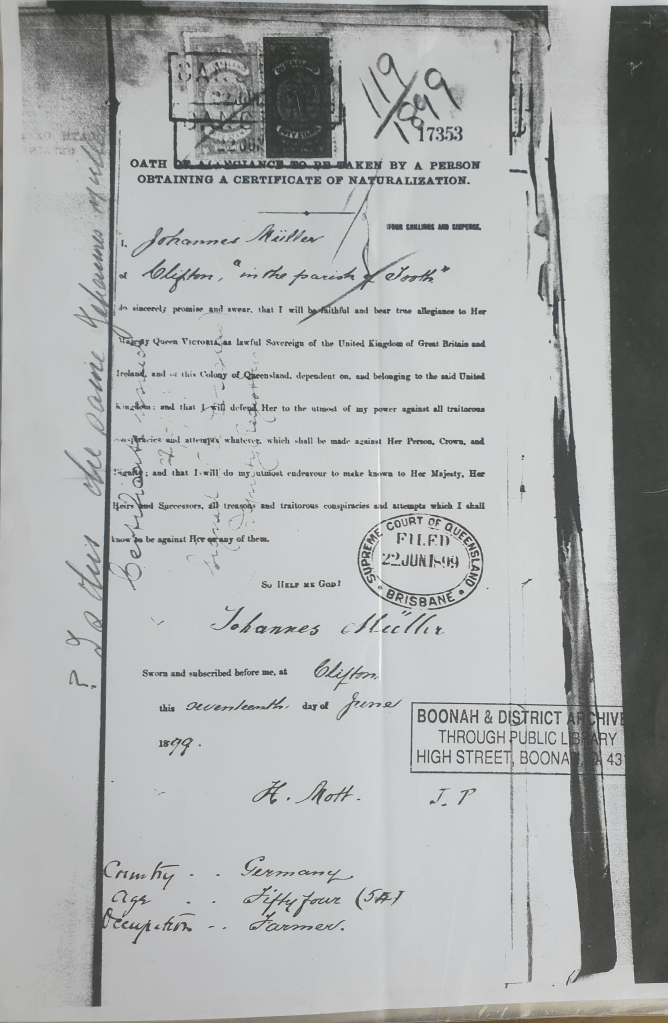 119
1899
17353
OATH OF ALLEGIANCE TO BE TAKEN BY A PERSON
OBTAINING A CERTIFICATE OF NATURALIZATION.
FOUR SHILLINGS AND SIXPENCE.
I, Johannes Müller
of Clifton, "in the parish of Tooth"
do sincerely promise and swear, that I will be faithful and bear true allegiance to Her
Majesty Queen VICTORIA, as lawful Sovereign of the United Kingdom of Great Britain and
Ireland, and of this Colony of Queensland, dependent on, and belonging to the said United
Kingdom; and that I will defend Her to the utmost of my power against all traitorous
conspiracies and attempts whatever, which shall be made against Her Person, Crown, and
Dignity; and that I will do my utmost endeavour to make known to Her Majesty, Her
Heirs and Successors, all treasons and traitorous conspiracies and attempts which I shall
know to be against Her or any of them.
SUPREME COURT OF QUEENSLAND
FILED
22 JUN 1899
BRISBANE
SO HELP ME GOD!
Johannes Müller
Sworn and subscribed before me, at Clifton
this seventeenth day of June
1899.
BOONAH & DISTRICT ARCHIVE
THROUGH PUBLIC LIBRARY
HIGH STREET, BOONAH 43
H. Mott. J.P
Country .. Germany
Age .. Fifty four (54)
Occupation .. Farmer.
? Is this the same Johannes Mull
Certificate issued